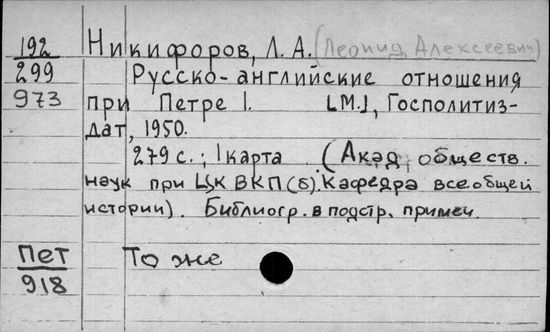 192 Никифоров, Л. А. (Леонид Алексеевич)
299 Русско-английские отношения
973 при Петре I. [М.], Госполитиз-
дат, 1950.
279 с.; 1 карта (Акад. обществ.
наук при ЦК ВКП(б). Кафедра всеобщей
истории). Библиогр. в подстр. примеч.
Пет То же
918